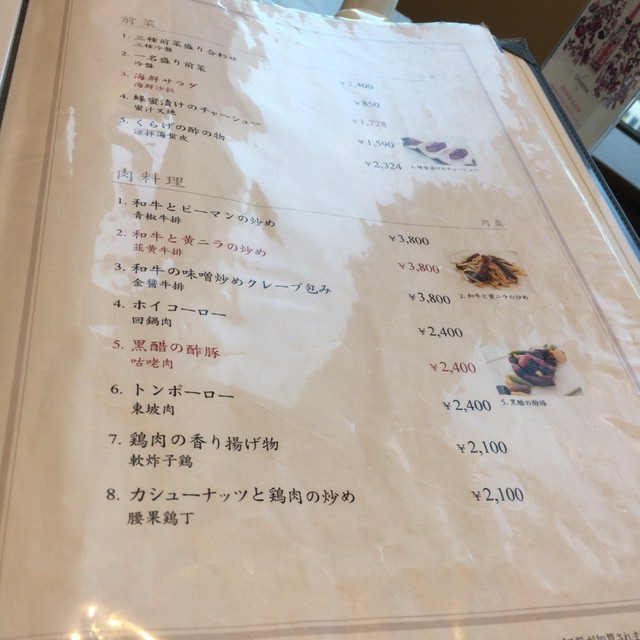 前菜
1. 三種前菜盛り合わせ
三種冷盤
2. 一名盛り前菜
冷盤
¥850
3. 海鮮サラダ
海鮮沙拉
¥1,728
4. 蜂蜜漬けのチャーシュー
蜜汁叉焼
¥1,590
5. くらげの酢の物
涼拌海蜇皮
¥2,324
4. 蜂蜜漬けのチャーシュー
肉料理
1. 和牛とピーマンの炒め
青椒牛排
¥3,800
2. 和牛と黄ニラの炒め
韮黄牛排
¥3,800
2. 和牛と黄ニラの炒め
3. 和牛の味噌炒めクレープ包み
金醤牛排
¥3,800
4. ホイコーロー
回鍋肉
¥2,400
5. 黒醋の酢豚
咕咾肉
¥2,400
5. 黒醋の酢豚
6. トンポーロー
東坡肉
¥2,400
7. 鶏肉の香り揚げ物
軟炸子鶏
¥2,100
8. カシューナッツと鶏肉の炒め
腰果鶏丁
¥2,100